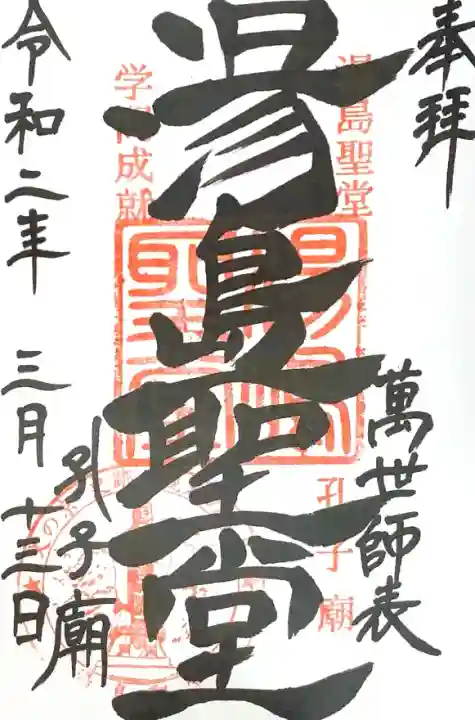 奉拝
萬世師表
湯島聖堂
孔子廟
湯島聖堂
湯島聖堂
学問成就
孔子廟
令和二年 三月 十三日